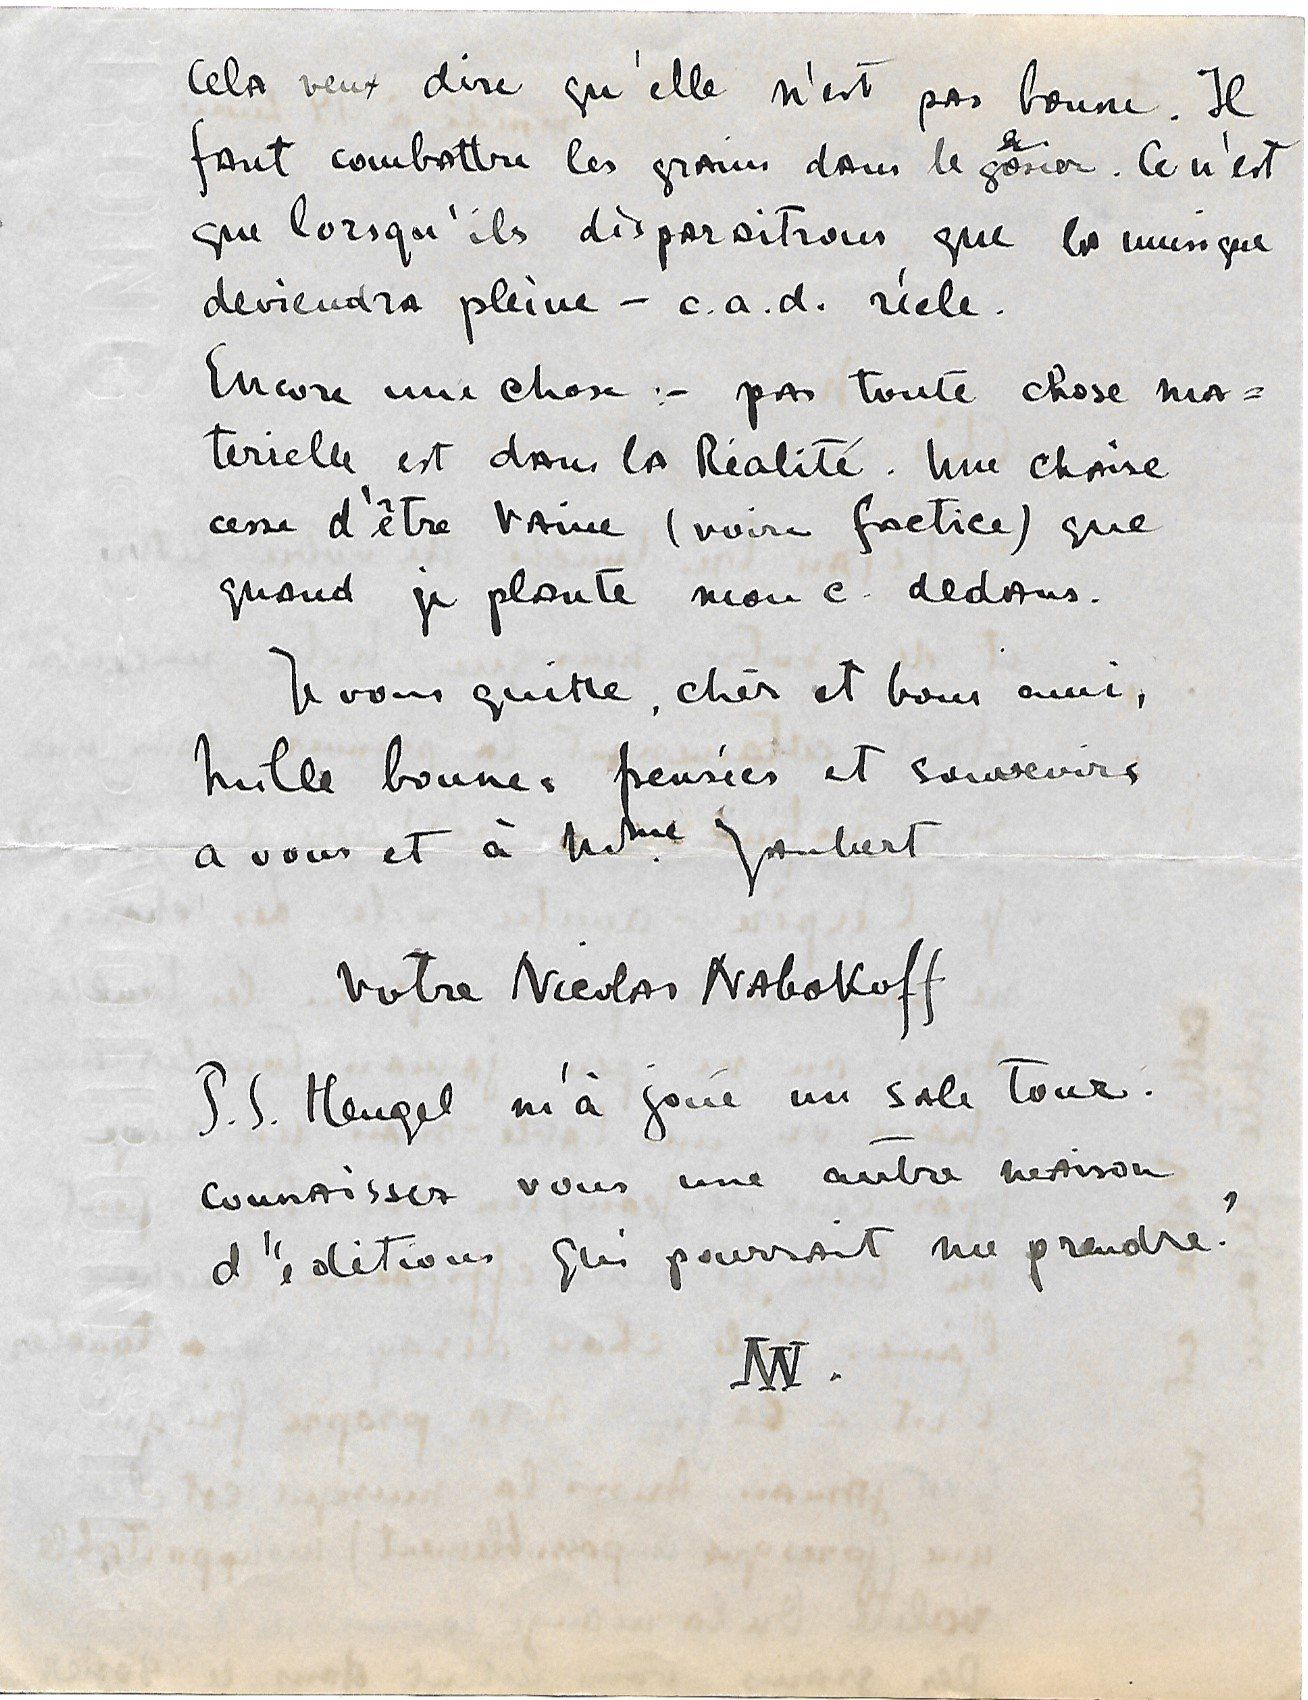 Cela veux dire qu'elle n'est pas bonne. Il
faut combattre les grains dans le gosier. Ce n'est
que lorsqu'ils disparaitrons que la musique
deviendra pleine – c.a.d. réele.
Encore une chose :- pas toute chose ma=
terielle est dans la Réalité. Une chaise
cesse d'être vaine (voire factice) que
quand je plante mon c. dedans.
Je vous quitte, cher et bons ami,
Mille bonnes pensées et souvenirs
a vous et à Mdme. Jaubert
Votre Nicolas Nabokoff
P.S. Heugel m'à joué un sale tour.
connaisser vous une autre maison
d'éditions qui pourrait me prendre?
NN.